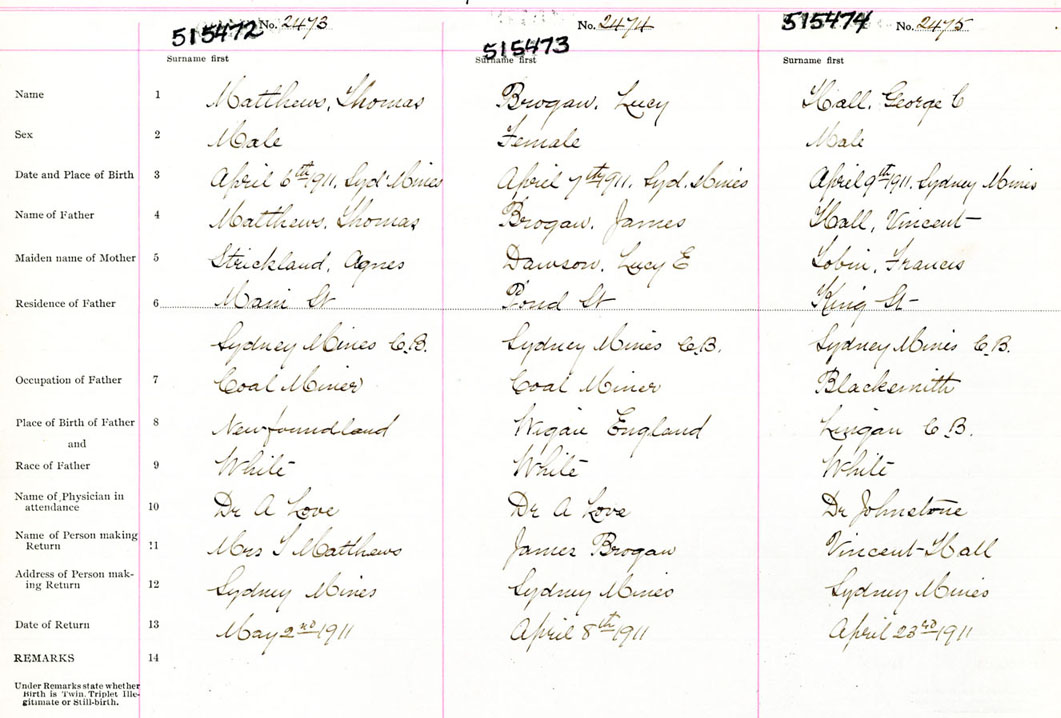 515472 No. 2473
515473 No. 2474
515474 No. 2475
Surname first Surname first Surname first
Name 1 Matthews, Thomas Brogan, Lucy Hall, George C
Sex 2 Male Female Male
Date and Place of Birth 3 April 6th 1911. Syd Mines April 7th 1911. Syd. Mines April 9th 1911. Sydney Mines
Name of Father 4 Matthews, Thomas Brogan, James Hall, Vincent
Maiden name of Mother 5 Strickland, Agnes Dawson, Lucy E Tobin, Francis
Residence of Father 6 Main St Pond St King St
Sydney Mines C.B. Sydney Mines C.B. Sydney Mines C.B.
Occupation of Father 7 Coal Miner Coal Miner Blacksmith
Place of Birth of Father 8 Newfoundland Wigan England Lingan C.B.
and
Race of Father 9 White White White
Name of Physician in
attendance 10 Dr A Love Dr A Love Dr Johnstone
Name of Person making
Return 11 Mrs T Matthews James Brogan Vincent Hall
Address of Person mak-
ing Return 12 Sydney Mines Sydney Mines Sydney Mines
Date of Return 13 May 2nd 1911 April 8th 1911 April 23rd 1911
REMARKS 14
Under Remarks state whether
Birth is Twin, Triplet Ille-
gitimate or Still-birth.